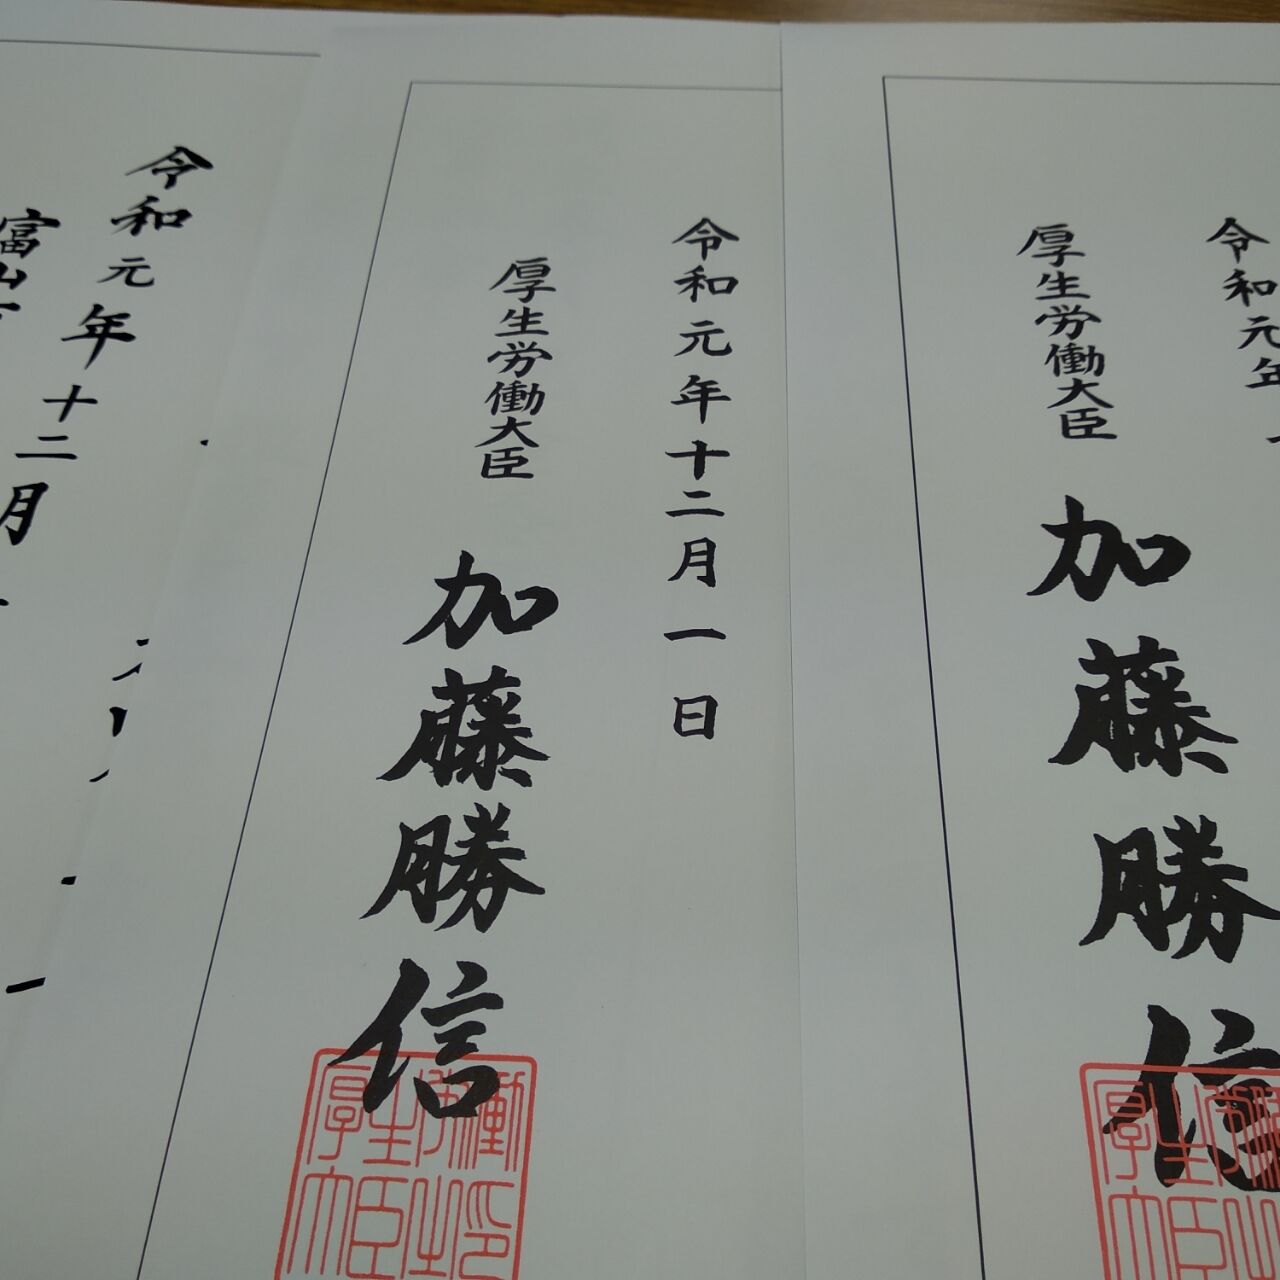 令和元年
厚生労働大臣
加藤勝信
令和元年十二月一日
厚生労働大臣
加藤勝信
厚生労働大臣之印
令和元年十二月
富山